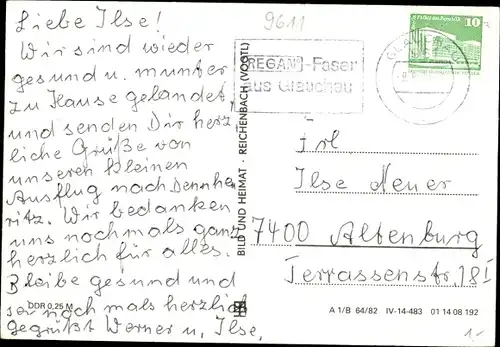 Liebe Ilse!
Wir sind wieder
gesund u. munter
zu Hause gelandet,
und senden Dir herz,
liche Grüße von
unseren kleinen
Ausflug nach Dennhe,
ritz. Wir bedanken
uns nochmals ganz
herzlich für alles.
Bleibe gesund und
sei noch mals herzlich
gegrüßt Werner u. Ilse,
DDR 0,25 M
BILD UND HEIMAT · REICHENBACH (VOGTL)
9611
REGAN-Faser
aus Glauchau
10
Frl
Ilse Neuer
7400 Altenburg
Terrassenstr. 18 I
A 1/B 64/82 IV-14-483 01 14 08 192
1,-